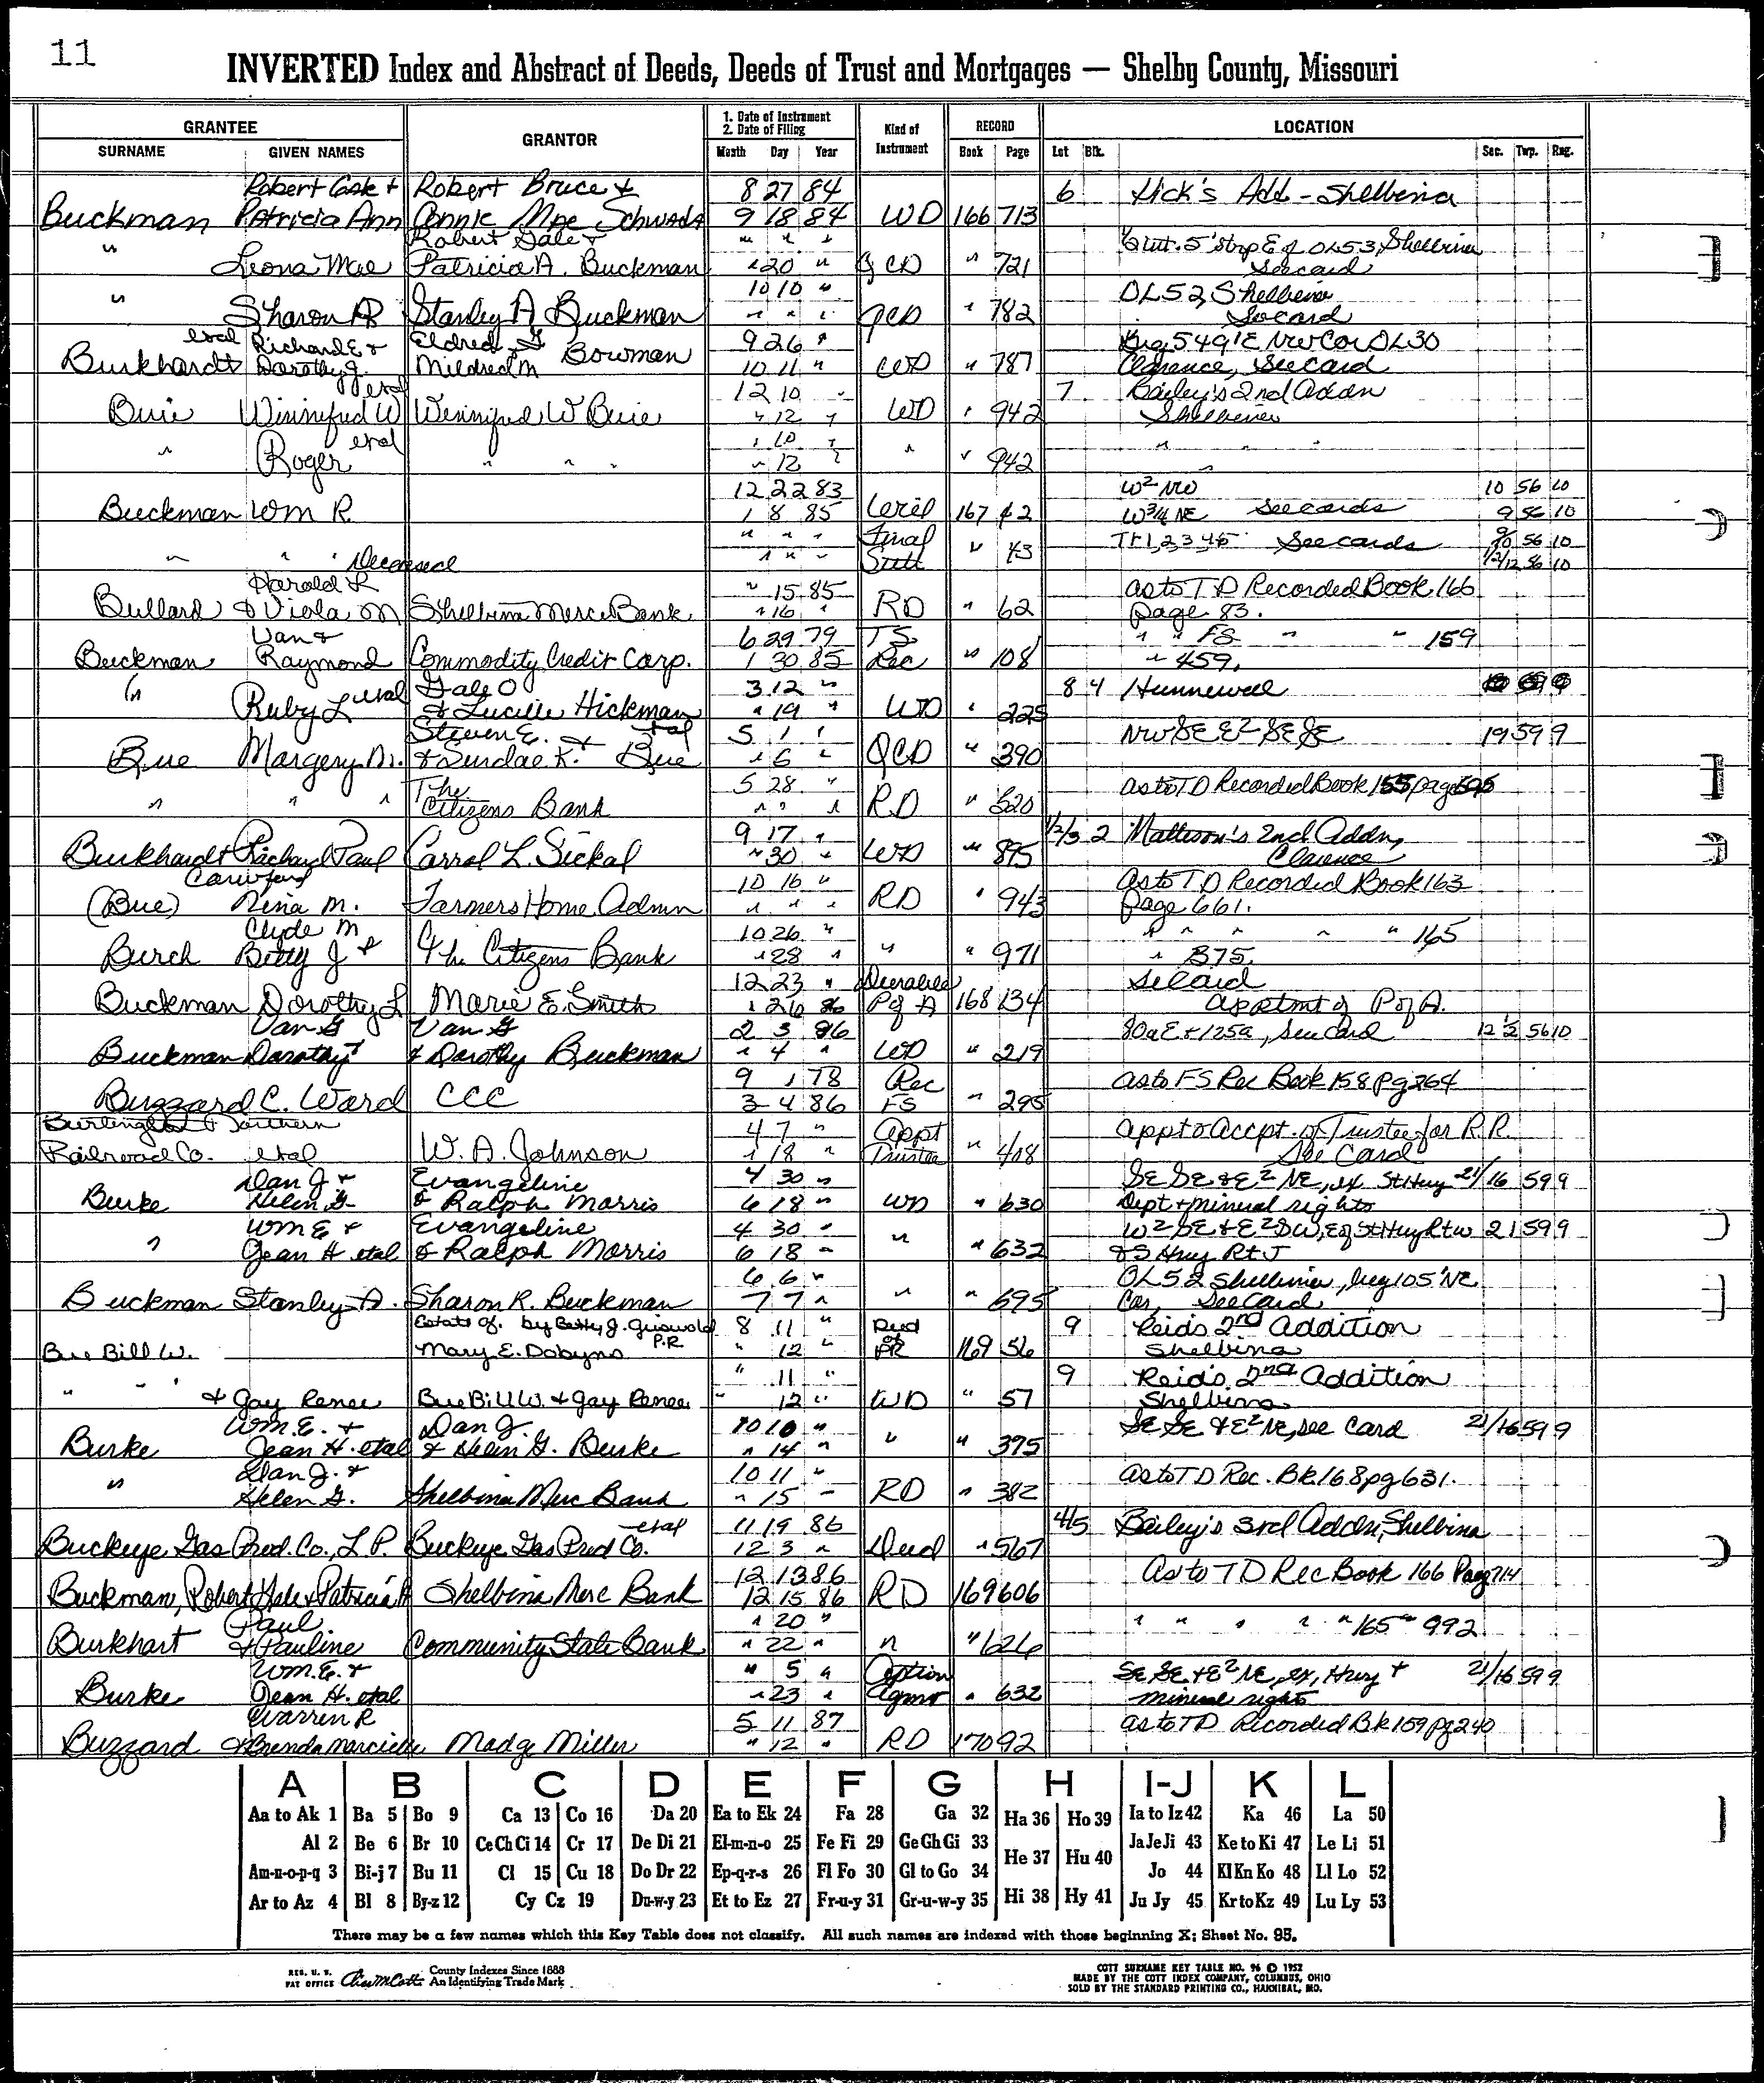 11
INVERTED Index and Abstract of Deeds, Deeds of Trust and Mortgages — Shelby County, Missouri
GRANTEE GRANTOR 1. Date of Instrument 2. Date of Filing Kind of Instrument RECORD LOCATION
SURNAME GIVEN NAMES Month Day Year Book Page Lot Blk. Sec. Twp. Rng.
Robert Robert Bruce + 8 27 84 6 Hick's Add - Shelbina
Buckman Patricia Ann Connie Mae Schwada 9 18 84 WD 166 713
" Robert Dale + " " " 5' Strip E of OL53, Shelbina
Leona Mae Patricia A. Buckman " 20 " QCD " 721 See card
" 10 10 " OL52, Shelbina
Sharon R Stanley A Buckman " " " QCD " 782 See card
etal Richard E + Eldred G Bowman 9 26 " Beg 549'E NW Cor OL30
Burkhardt Dorothy J. Mildred M 10 11 " WD " 787 Clarence, See Card
etal 12 10 " 7 Bailey's 2nd Addn
Buie Winnifred W Winnifred W Buie " 12 " WD " 942 Shelbina
" etal " 10 " " " "
Roger " " " " 12 " " " 942 "
12 22 83 W² NW 10 56 10
Buckman Wm R. 1 8 85 167 42 W¾ NE See cards 9 56 10
" " " Final Tr 1, 2, 3, 4, 5 See cards 56 10
Deceased " " " Sett " 43 56 10
Harold L " 15 85 as to TD Recorded Book 166
Bullard & Viola M Shelbina Merc Bank " 16 " RD " 62 page 83.
Van & 6 29 79 TS " " FS " " 159
Buckman Raymond Commodity Credit Corp. 1 30 85 Rec " 108 " 459.
" etal Gale O 3 12 " 8 4 Hunnewell
Ruby L & Lucille Hickman " 19 " WD " 225
Steven E. & etal 5 1 " NW SE E² SE SE 19 59 9
Bue Margery M. & K. Bue " 6 " QCD " 390
" " " The 5 28 " as to TD Recorded Book 155 page 595
Citizens Bank " " " RD " 520
9 17 " 1/2/3 2 Matteson's 2nd Addn,
Burkhardt Richard Paul Carrol L. Sickal " 30 " WD " 895 Clarence
Crawford 10 16 " as to TD Recorded Book 163
(Bue) Nina M. Farmers Home Admn " " " RD " 943 page 661.
Clyde M 10 26 " " " " " " 165
Burch Betty J & The Citizens Bank " 28 " " " 971 " 375.
12 23 " Durable See Card
Buckman Dorothy L Marie E. Smith 1 26 86 P of A 168 134 Apptmt of P of A.
Van G Van G 2 3 86 80a E + 125a, See Card 12 1/2 56 10
Buckman Dorothy & Dorothy Buckman " 4 " WD " 219
9 1 78 Rec as to FS Rec Book 158 pg 264
Buzzard C. Ward CCC 3 4 86 FS " 295
Burlington Northern 4 7 " Appt Appt & Accpt. of Trustee for R.R.
Railroad Co. etal W. A. Johnson " 18 " Trustee " 408 See Card
Dan J + Evangeline 4 30 " SE SE & E² NE, ex St Hwy 21/16 59 9
Burke Helen G & Ralph Morris 6 18 " WD " 630 Dept + mineral rights
Wm E + Evangeline 4 30 " W² SE & E² SW, E of St Hwy Rt W 21 59 9
" Jean H etal & Ralph Morris 6 18 " " " 632 & S Hwy Rt J
6 6 " OL52 Shelbina, beg 105' NE
Buckman Stanley A. Sharon R. Buckman 7 7 " " " 695 Cor, See Card
Estate of. by Betty J. Griswold P.R 8 11 " Deed 9 Reid's 2nd Addition
Bue Bill W. Mary E. Dobyns " 12 " PR 169 56 Shelbina
" " " " 11 " 9 Reid's 2nd Addition
& Gay Renee Bue Bill W. & Gay Renee " 12 " WD " 57 Shelbina
Wm. E. + Dan J. 10 10 " SE SE & E² NE, see Card 21/16 59 9
Burke Jean H. etal & Helen G. Burke " 14 " " " 375
Dan J. + 10 11 " as to TD Rec. Bk 168 pg 631.
" Helen G. Shelbina Merc Bank " 15 " RD " 382
etal 11 19 86 4/5 Bailey's 3rd Addn, Shelbina
Buckeye Gas Prod. Co., L.P. Buckeye Gas Prod Co. 12 3 " Deed " 567
12 13 86 As to TD Rec Book 166 Page 714
Buckman, Robert Dale & Patricia A Shelbina Merc Bank 12 15 86 RD 169 606
Paul " 20 " " " " " " 165 " 992
Burkhart & Pauline Community State Bank " 22 " " " 626
Wm. E. + " 5 " Option SE SE & E² NE, ex, Hwy + 21/16 59 9
Burke Jean H. etal " 23 " Agmt " 632 mineral rights
Warren R 5 11 87 as to TD Recorded Bk 159 pg 240
Buzzard & Brenda Marcielle Madge Miller " 12 " RD 170 92
A B C D E F G H I-J K L
Aa to Ak 1 Ba 5 Bo 9 Ca 13 Co 16 Da 20 Ea to Ek 24 Fa 28 Ga 32 Ha 36 Ho 39 Ia to Iz 42 Ka 46 La 50
Al 2 Be 6 Br 10 Ce Ch Ci 14 Cr 17 De Di 21 El-m-n-o 25 Fe Fi 29 Ge Gh Gi 33 He 37 Hu 40 Ja Je Ji 43 Ke to Ki 47 Le Li 51
Am-n-o-p-q 3 Bi-j 7 Bu 11 Cl 15 Cu 18 Do Dr 22 Ep-q-r-s 26 Fl Fo 30 Gl to Go 34 Jo 44 Kl Kn Ko 48 Ll Lo 52
Ar to Az 4 Bl 8 By-z 12 Cy Cz 19 Du-w-y 23 Et to Ez 27 Fr-u-y 31 Gr-u-w-y 35 Hi 38 Hy 41 Ju Jy 45 Kr to Kz 49 Lu Ly 53
There may be a few names which this Key Table does not classify. All such names are indexed with those beginning X; Sheet No. 95.
REG. U. S. PAT OFFICE County Indexes Since 1888 An Identifying Trade Mark
COTT SURNAME KEY TABLE NO. 96 © 1952
MADE BY THE COTT INDEX COMPANY, COLUMBUS, OHIO
SOLD BY THE STANDARD PRINTING CO., HANNIBAL, MO.